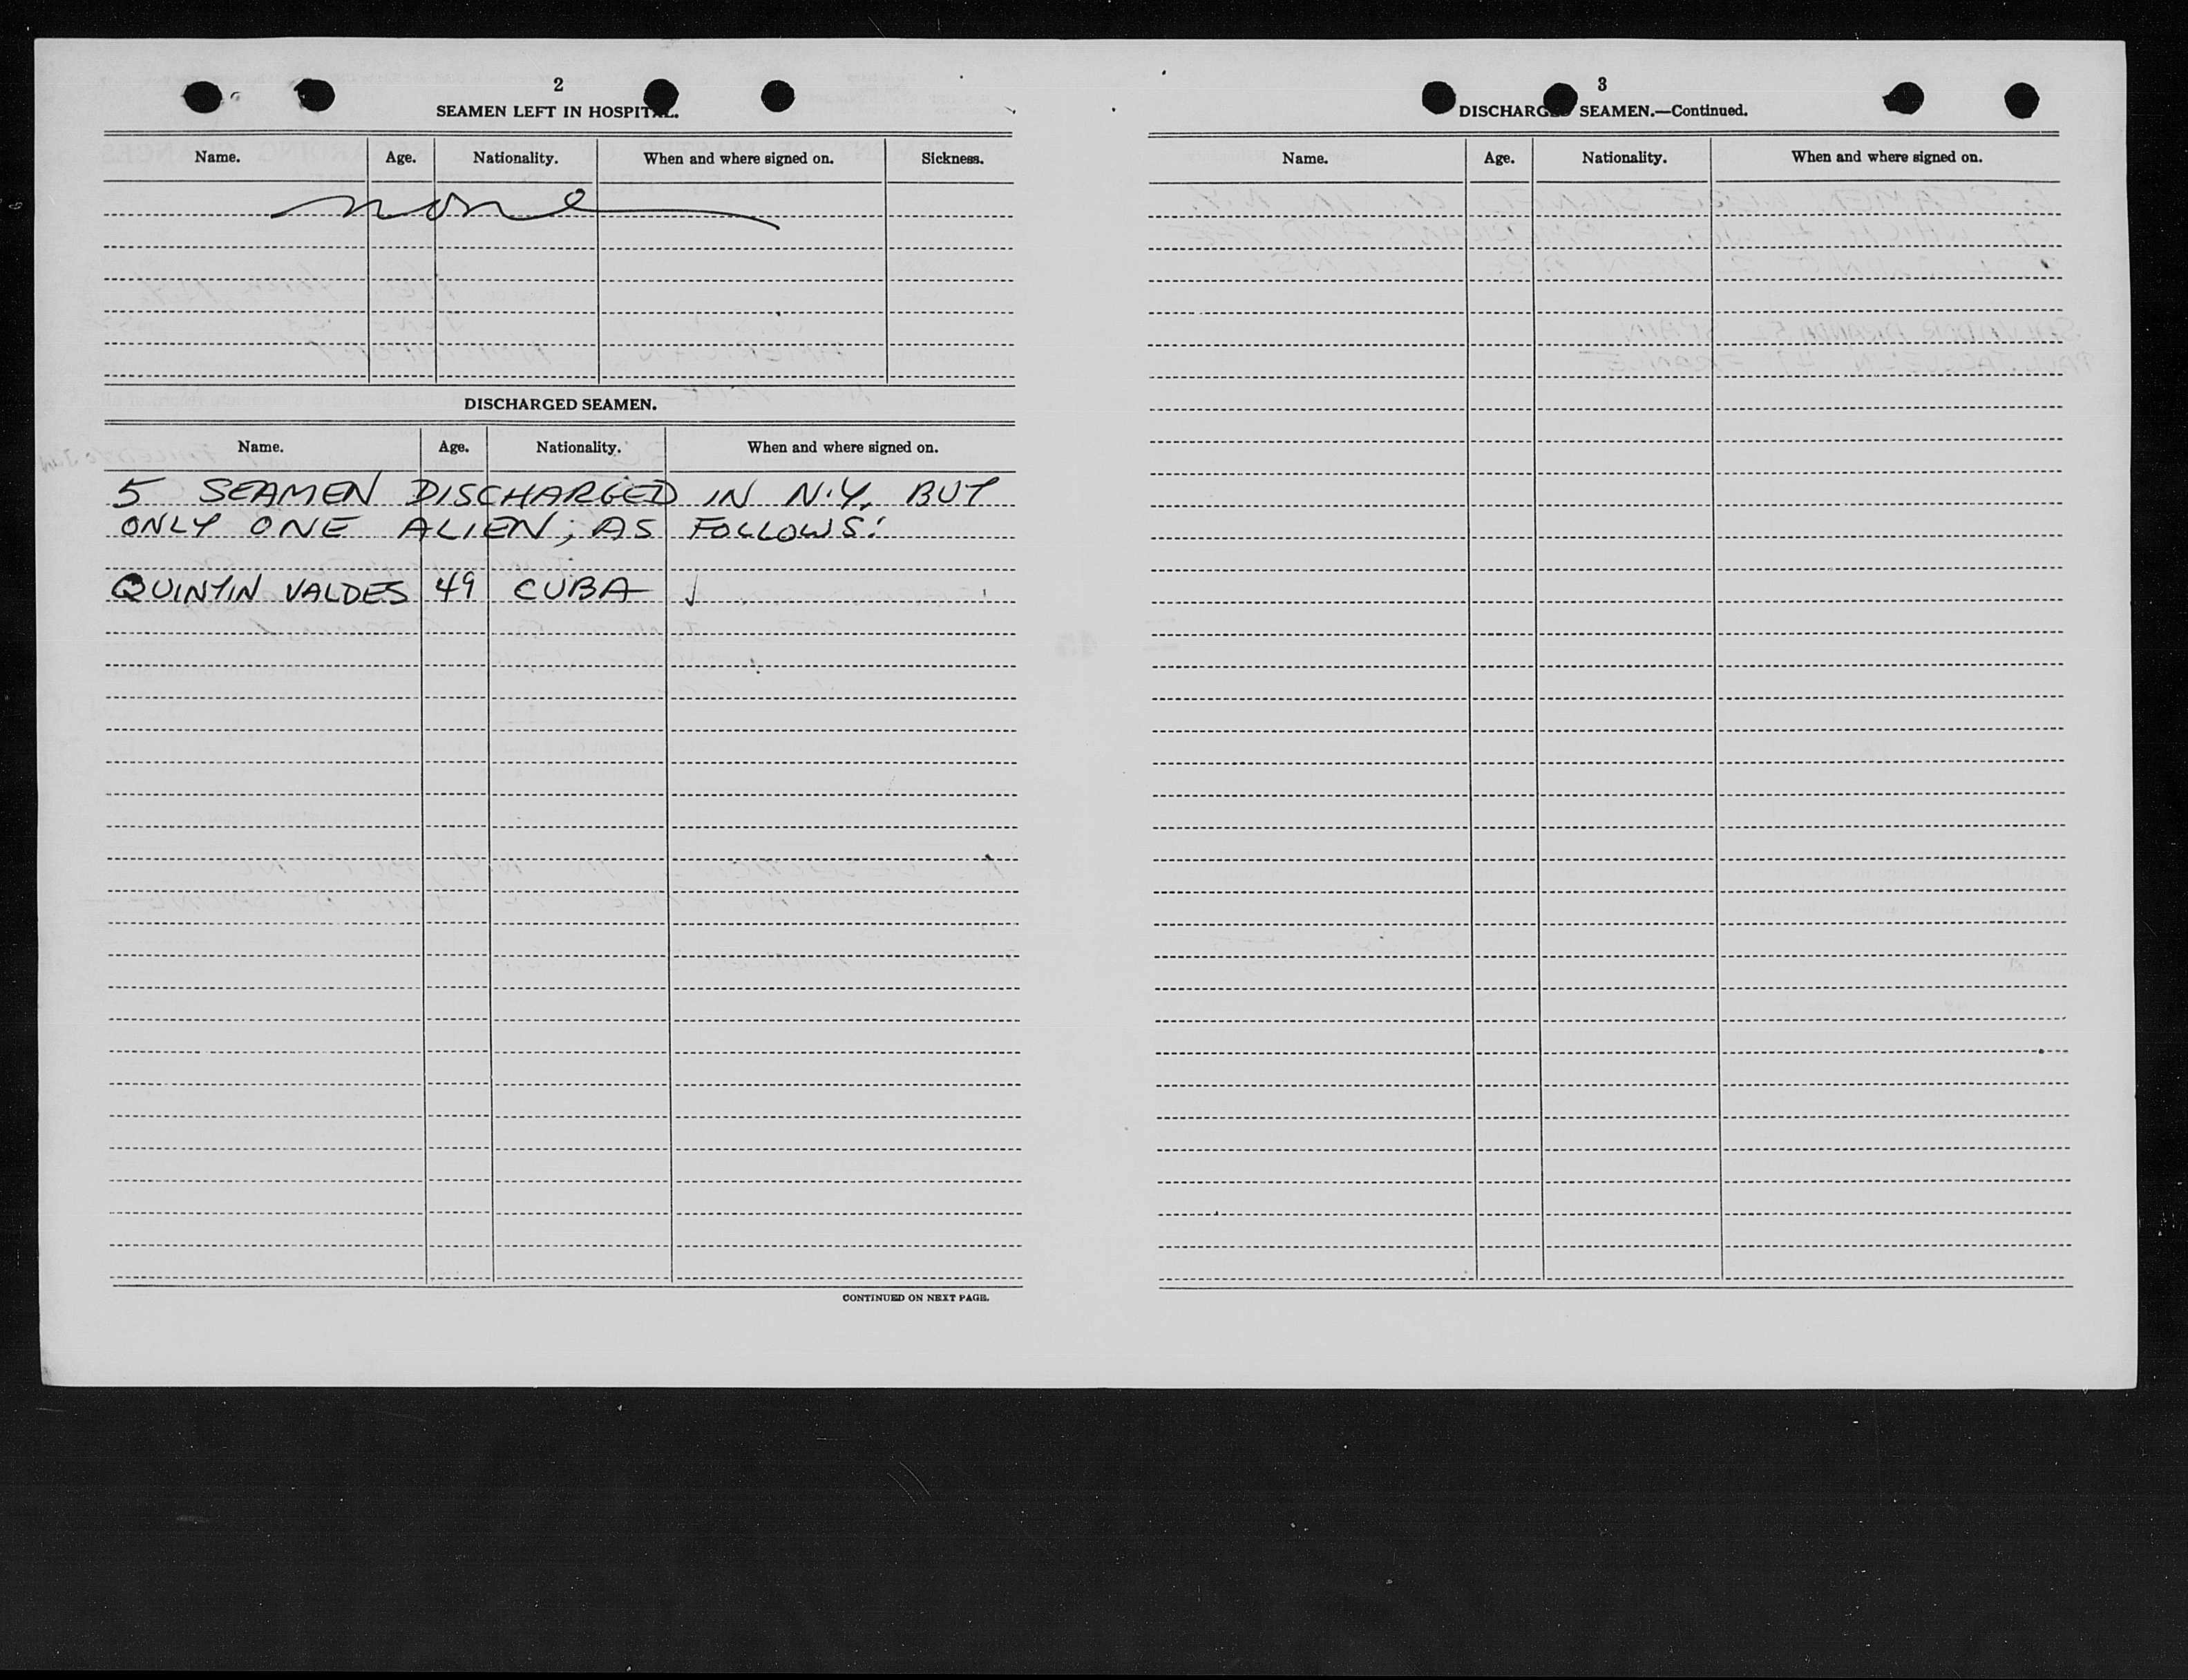 2
SEAMEN LEFT IN HOSPITAL.
Name. Age. Nationality. When and where signed on. Sickness.
none
DISCHARGED SEAMEN.
Name. Age. Nationality. When and where signed on.
5 SEAMEN DISCHARGED IN N.Y. BUT
ONLY ONE ALIEN, AS FOLLOWS:
QUINTIN VALDES 49 CUBA ✓
CONTINUED ON NEXT PAGE.
3
DISCHARGED SEAMEN.—Continued.
Name. Age. Nationality. When and where signed on.